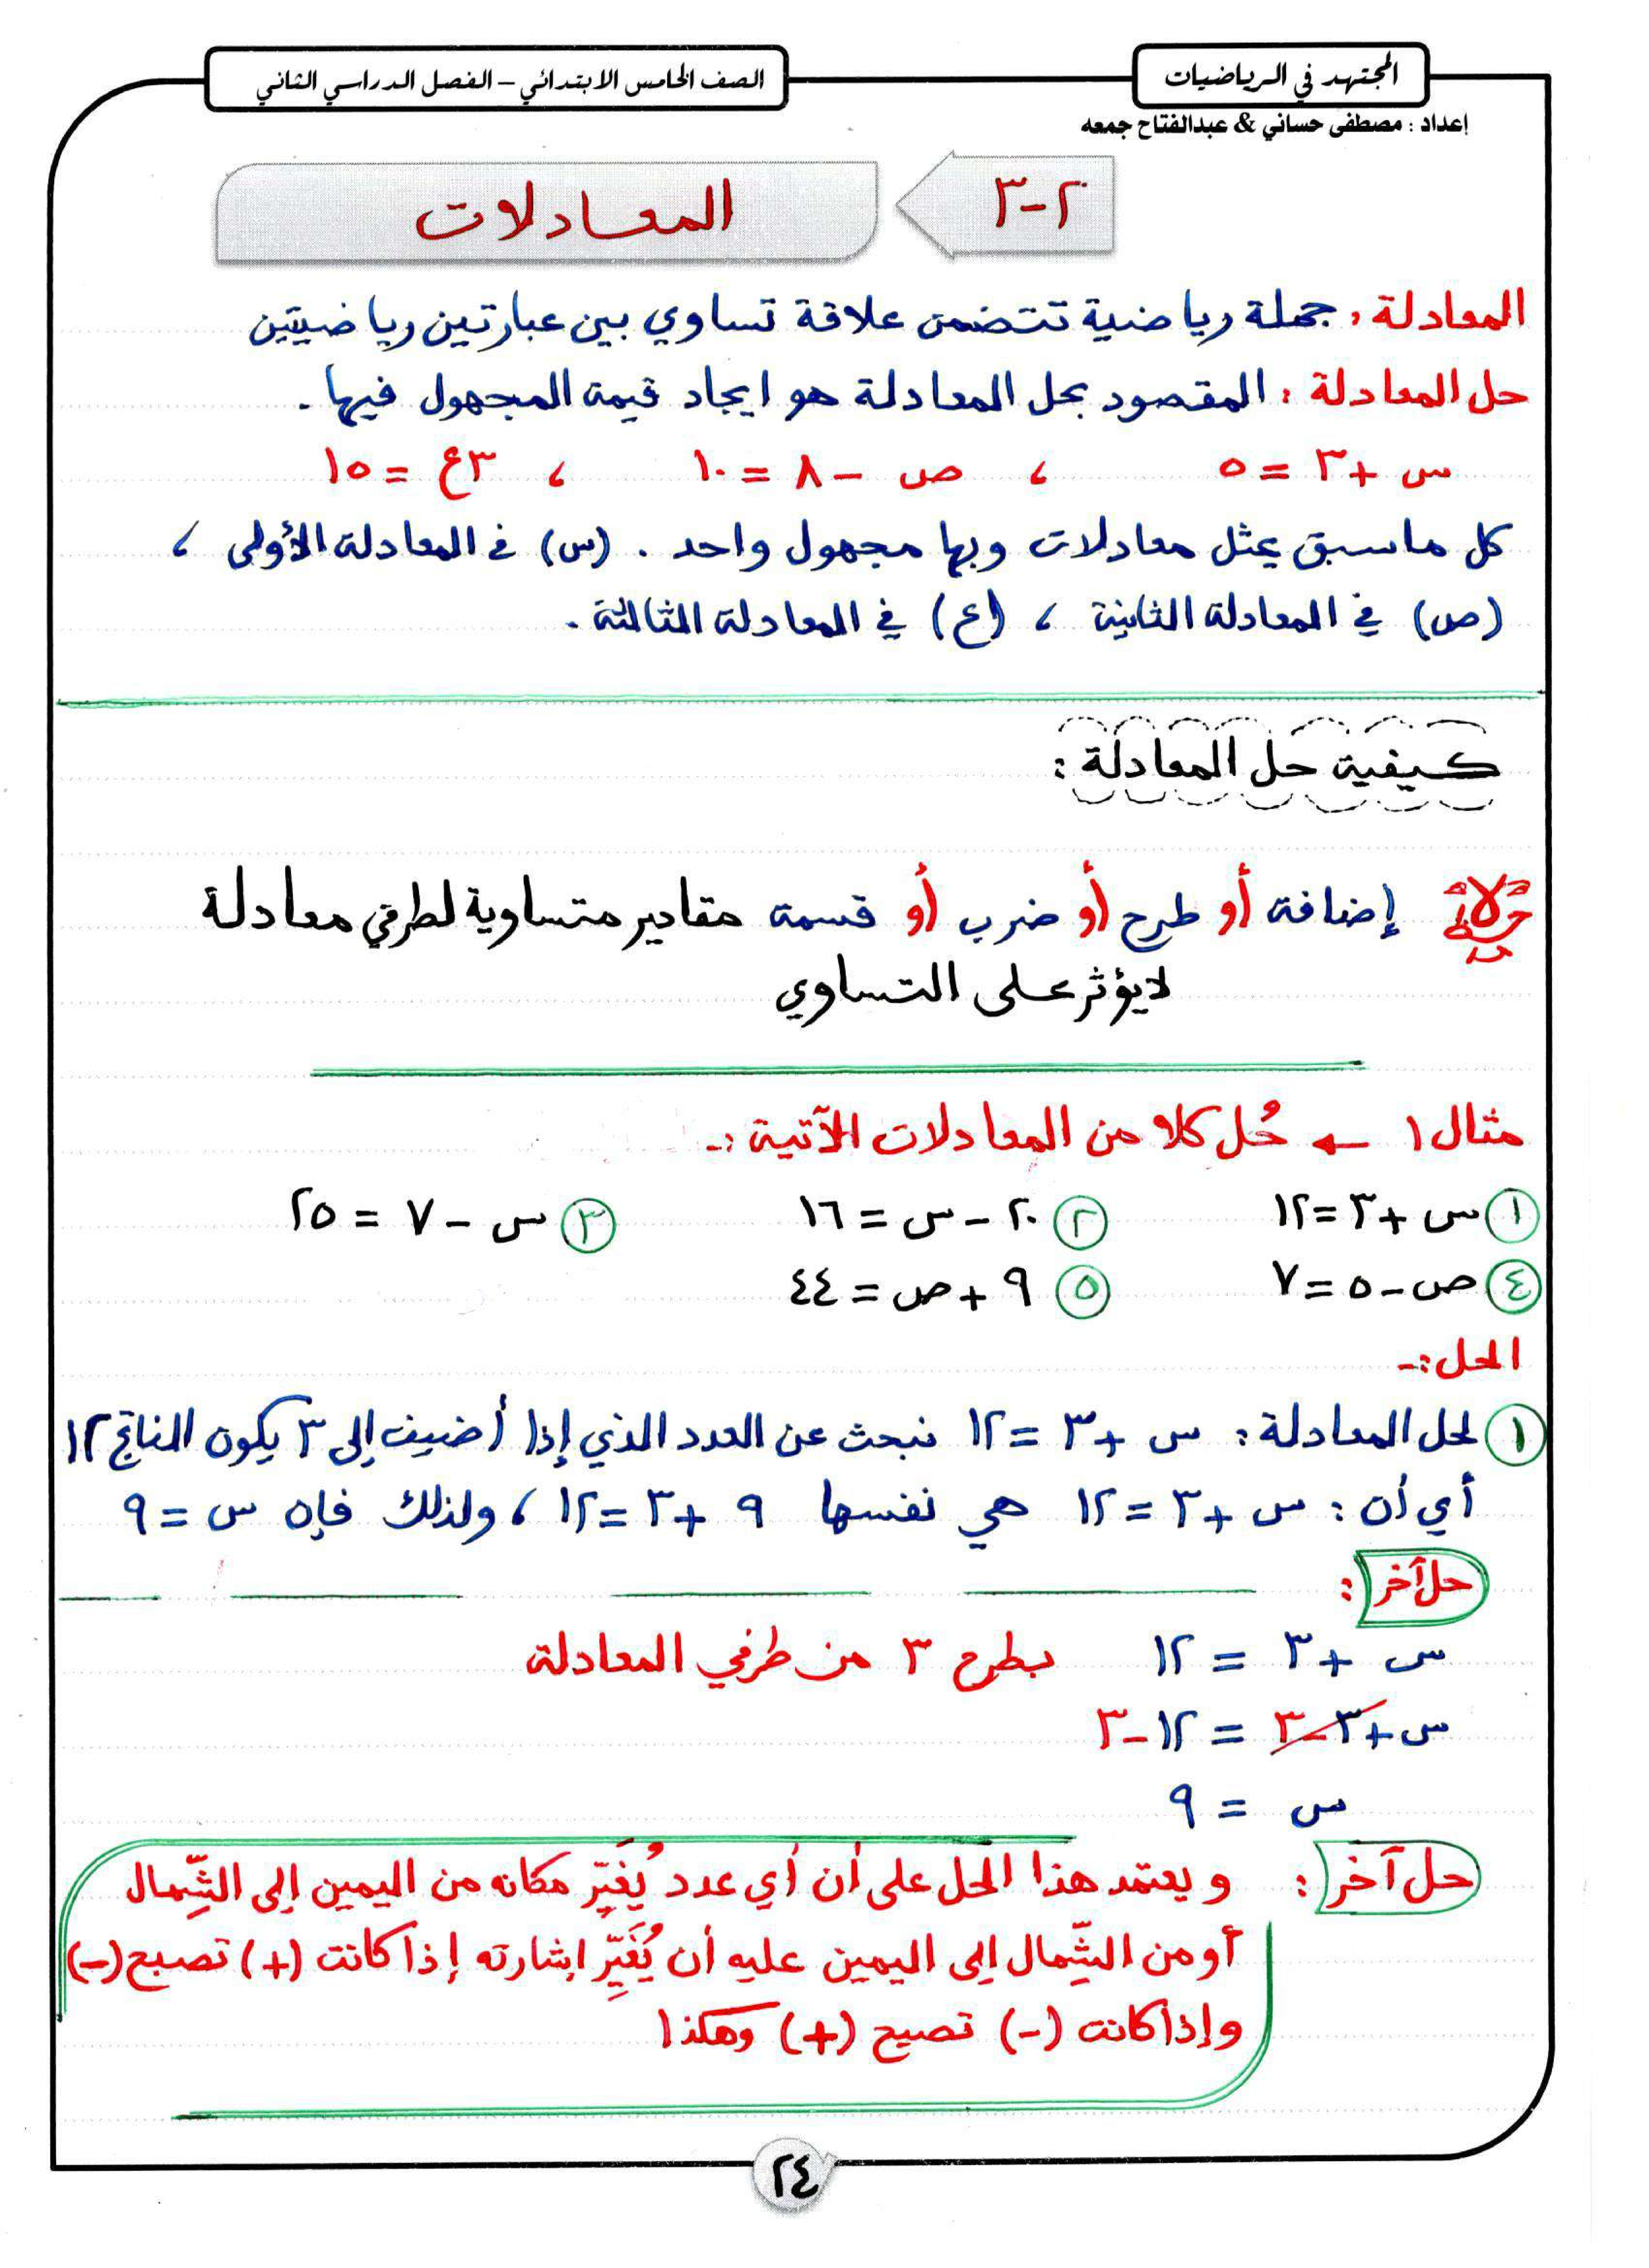 المجتهد في الرياضيات
الصف الخامس الابتدائي – الفصل الدراسي الثاني
إعداد : مصطفى حساني & عبدالفتاح جمعه
٢-٣
المعادلات
المعادلة : جملة رياضية تتضمن علاقة تساوي بين عبارتين رياضيتين
حل المعادلة : المقصود بحل المعادلة هو ايجاد قيمة المجهول فيها .
س + ٣ = ٥ ، ص – ٨ = ١٠ ، ٣ع = ١٥
كل ماسبق يمثل معادلات وبها مجهول واحد . (س) في المعادلة الأولى ،
(ص) في المعادلة الثانية ، (ع) في المعادلة الثالثة .
كيفية حل المعادلة :
إضافة أو طرح أو ضرب أو قسمة مقادير متساوية لطرفي معادلة
لايؤثر على التساوي
مثال ١ ← حُل كلا من المعادلات الآتية :-
١ س + ٣ = ١٢ ٢ ٢٠ – س = ١٦ ٣ س – ٧ = ٢٥
٤ ص – ٥ = ٧ ٥ ٩ + ص = ٤٤
الحل :-
١ لحل المعادلة : س + ٣ = ١٢ نبحث عن العدد الذي إذا أضيف إلى ٣ يكون الناتج ١٢
أي أن : س + ٣ = ١٢ هي نفسها ٩ + ٣ = ١٢ ، ولذلك فإن س = ٩
حل آخر :
س + ٣ = ١٢ بطرح ٣ من طرفي المعادلة
س + ٣ – ٣ = ١٢ – ٣
س = ٩
حل آخر : ويعتمد هذا الحل على أن أي عدد يُغَيِّر مكانه من اليمين إلى الشِّمال
أو من الشِّمال إلى اليمين عليه أن يُغَيِّر إشارته إذا كانت (+) تصبح (–)
وإذا كانت (–) تصبح (+) وهكذا
٢٤